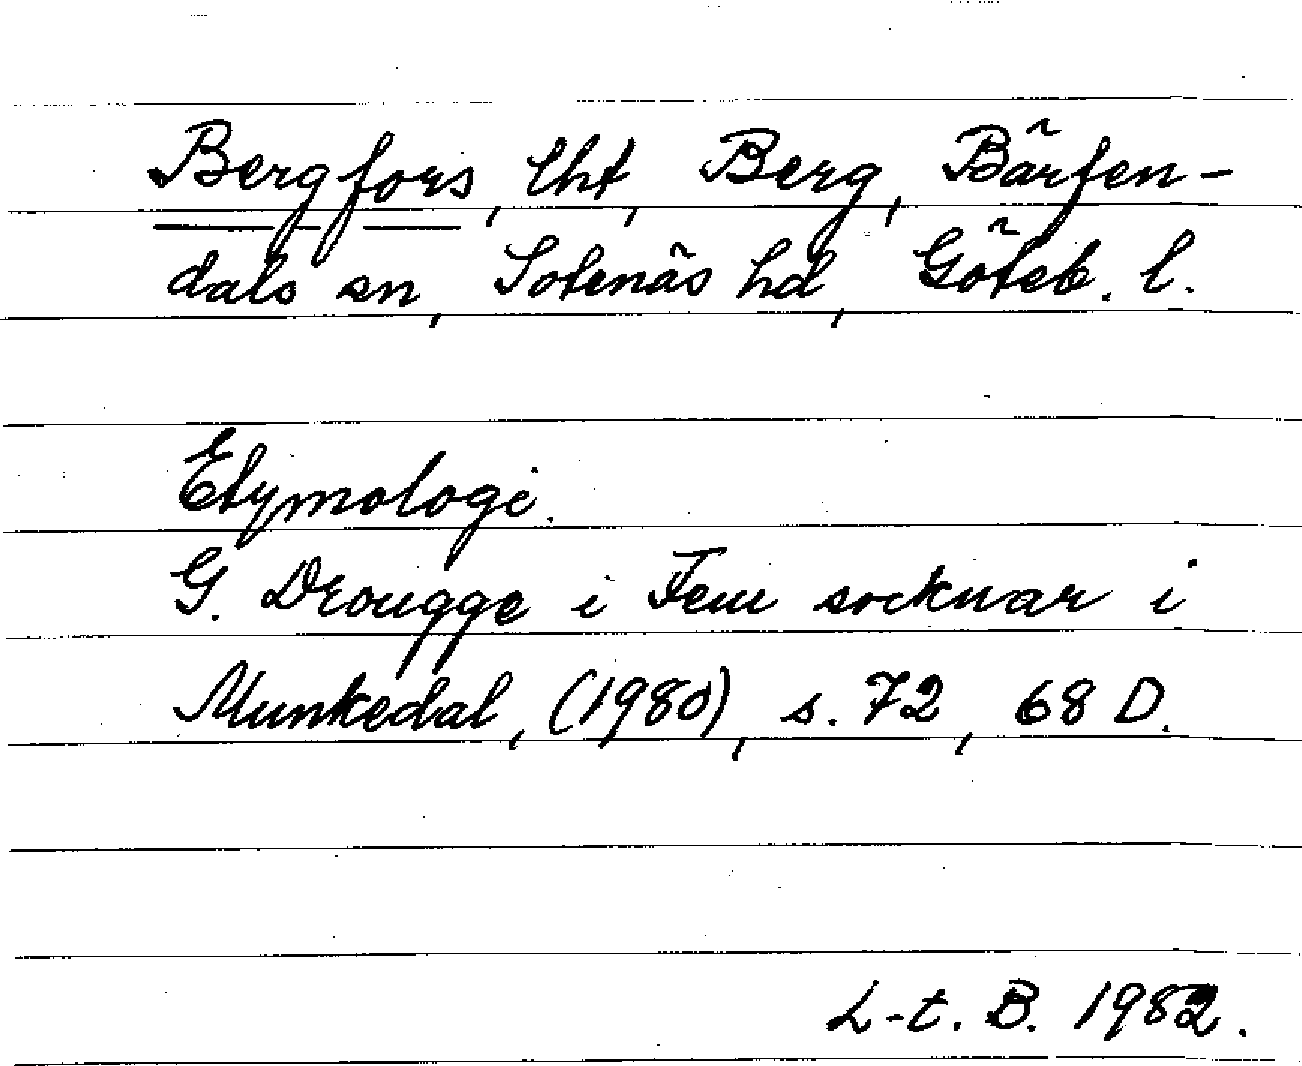 Bergfors, lht, Berg, Bärfen-
dals sn, Sotenäs hd, Göteb. l.
Etymologi.
G. Drougge i Fem socknar i
Munkedal, (1980), s. 72, 68 D.
L-t. B. 1982.